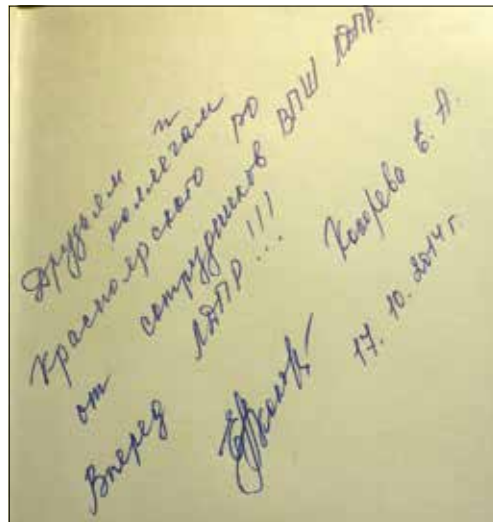 Друзьям и
коллегам
Красноярского РО
от сотрудников ВПШ ЛДПР.
Вперед ЛДПР!!!
Кокорева Е. А.
17. 10. 2014 г.